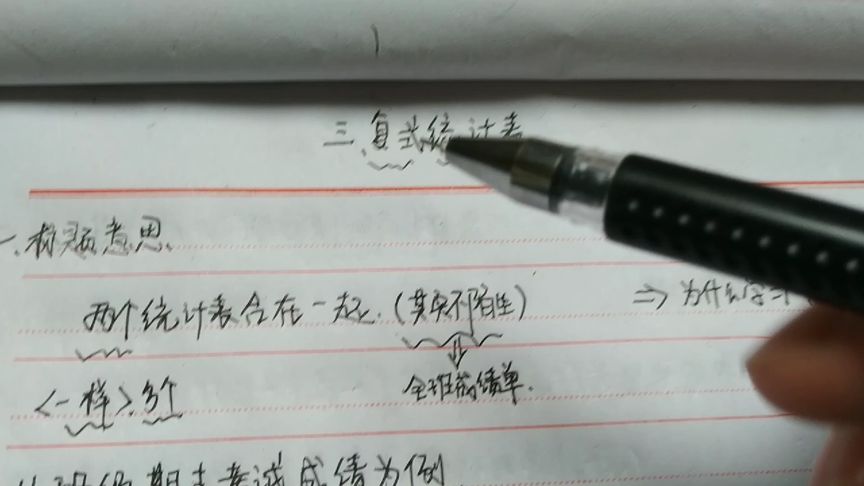 三、复式统计表
一、标题意思、
两个统计表合在一起、(其实不陌生) ⇒ 为什么学习
⇓
<一样>、多个 全班成绩单.
班级期末考试成绩为例